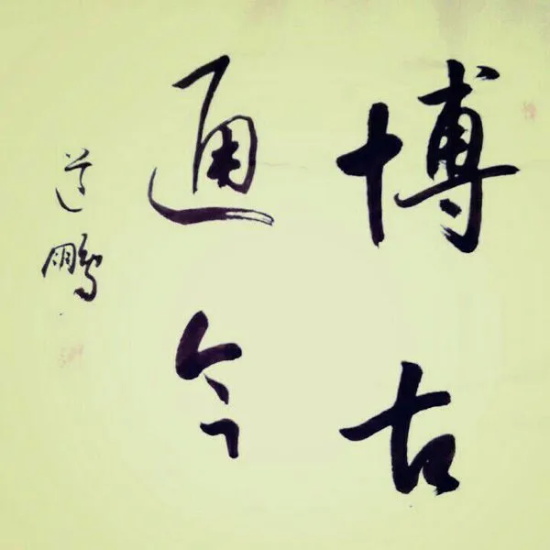 博古
通今
道鹏